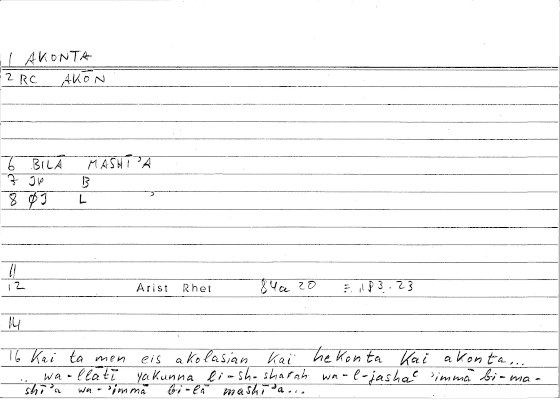 1 AKONTA
2 RC AKŌN
6 BILĀ MASHĪ'A
7 JV B
8 ØJ L '
11
12 Arist Rhet 84a 20 = 183.23
14
16 Kai ta men eis akolasian kai hekonta kai akonta...
.. wa-llātī yakunna li-sh-sharah wa-l-jashaʿ 'immā bi-ma-
shī'a wa-'immā bi-lā mashī'a...